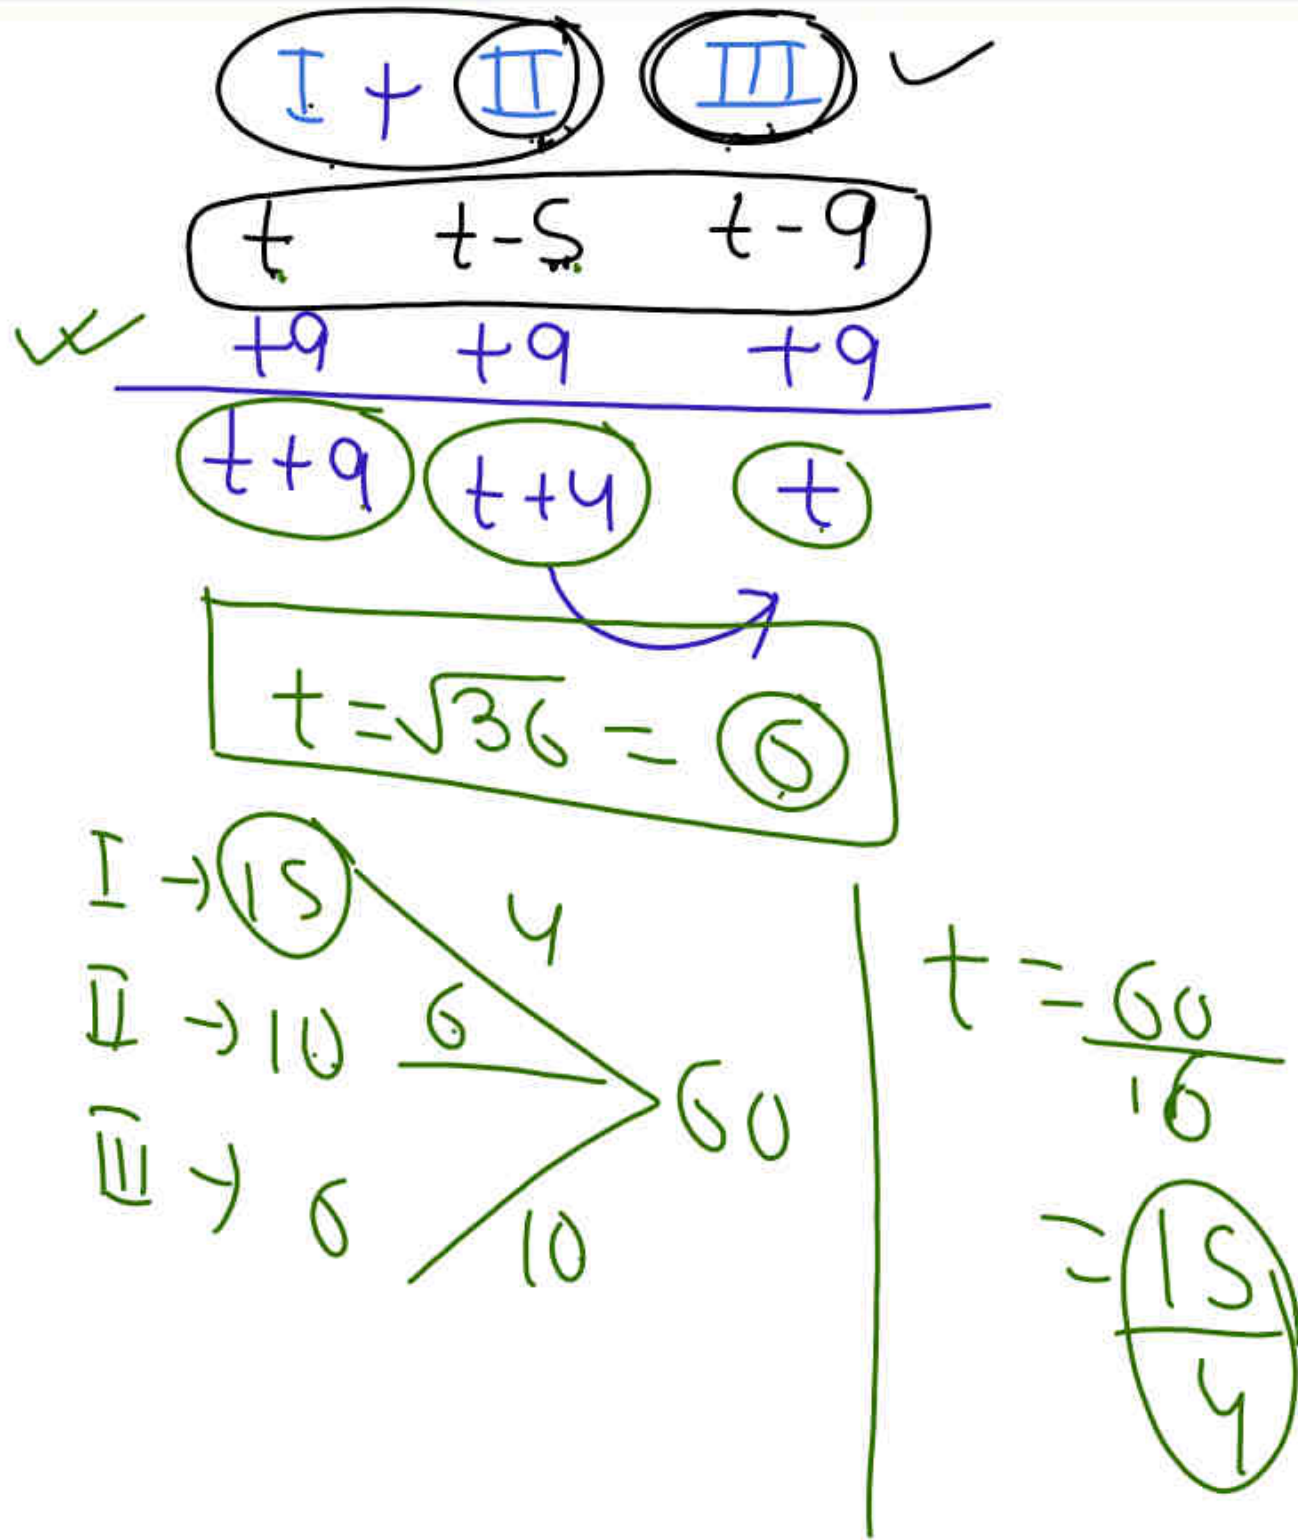 I + II III ✓
t t-5 t-9
+9 +9 +9
t+9 t+4 t
t = √36 = 6
I → 15 4
II → 10 6
60
III → 6 10
t = 60/16
= 15/4